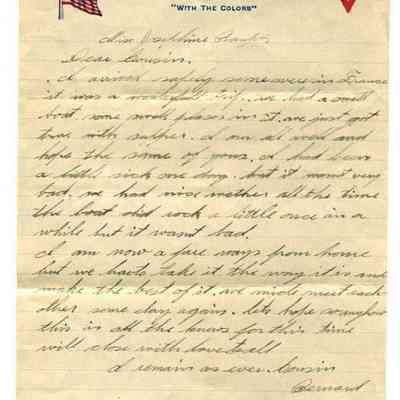 "WITH THE COLORS"
Miss Josephine
Dear Cousin.
I arived safely somewere in France
it was a wonderful trip. we had a small
boat. some work passin it. we just got
true with supper. I am all well and
hope the same of yours. I had been
a little sick one day. but it wasnt very
bad. we had nice wether all the time
the boat did rock a little once in a
while but it wasnt bad.
I am now a fare ways from home
but we hafto take it the way it is and
make the best of it. we mide meet each
other some day again. lets hope so
this is all the knews for this time
will close with love to all
I remain as ever Cousin
Bernard